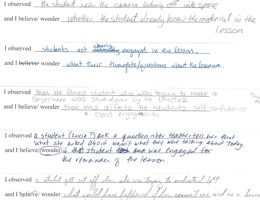 I observed the student near the camera looking off into space
and I believe/ wonder whether the student already knew the material in the
lesson
I observed students not clearly engaged in the lesson,
and I believe/ wonder what their thoughts/questions about the lesson are
I observed that the female student who was trying to make a
conjecture was shut down by the teacher
and I believe/ wonder that this affects the students self-confidence
& class engagement
I observed a student (Lucia?) ask a question, her teacher
what she asked about wasn't what they were talking about today
and I believe/ wonder if that student was engaged for
the remainder of the lesson
I observed a child get cut off when she was trying to
and I believe/ wonder what would have happened if her comment was